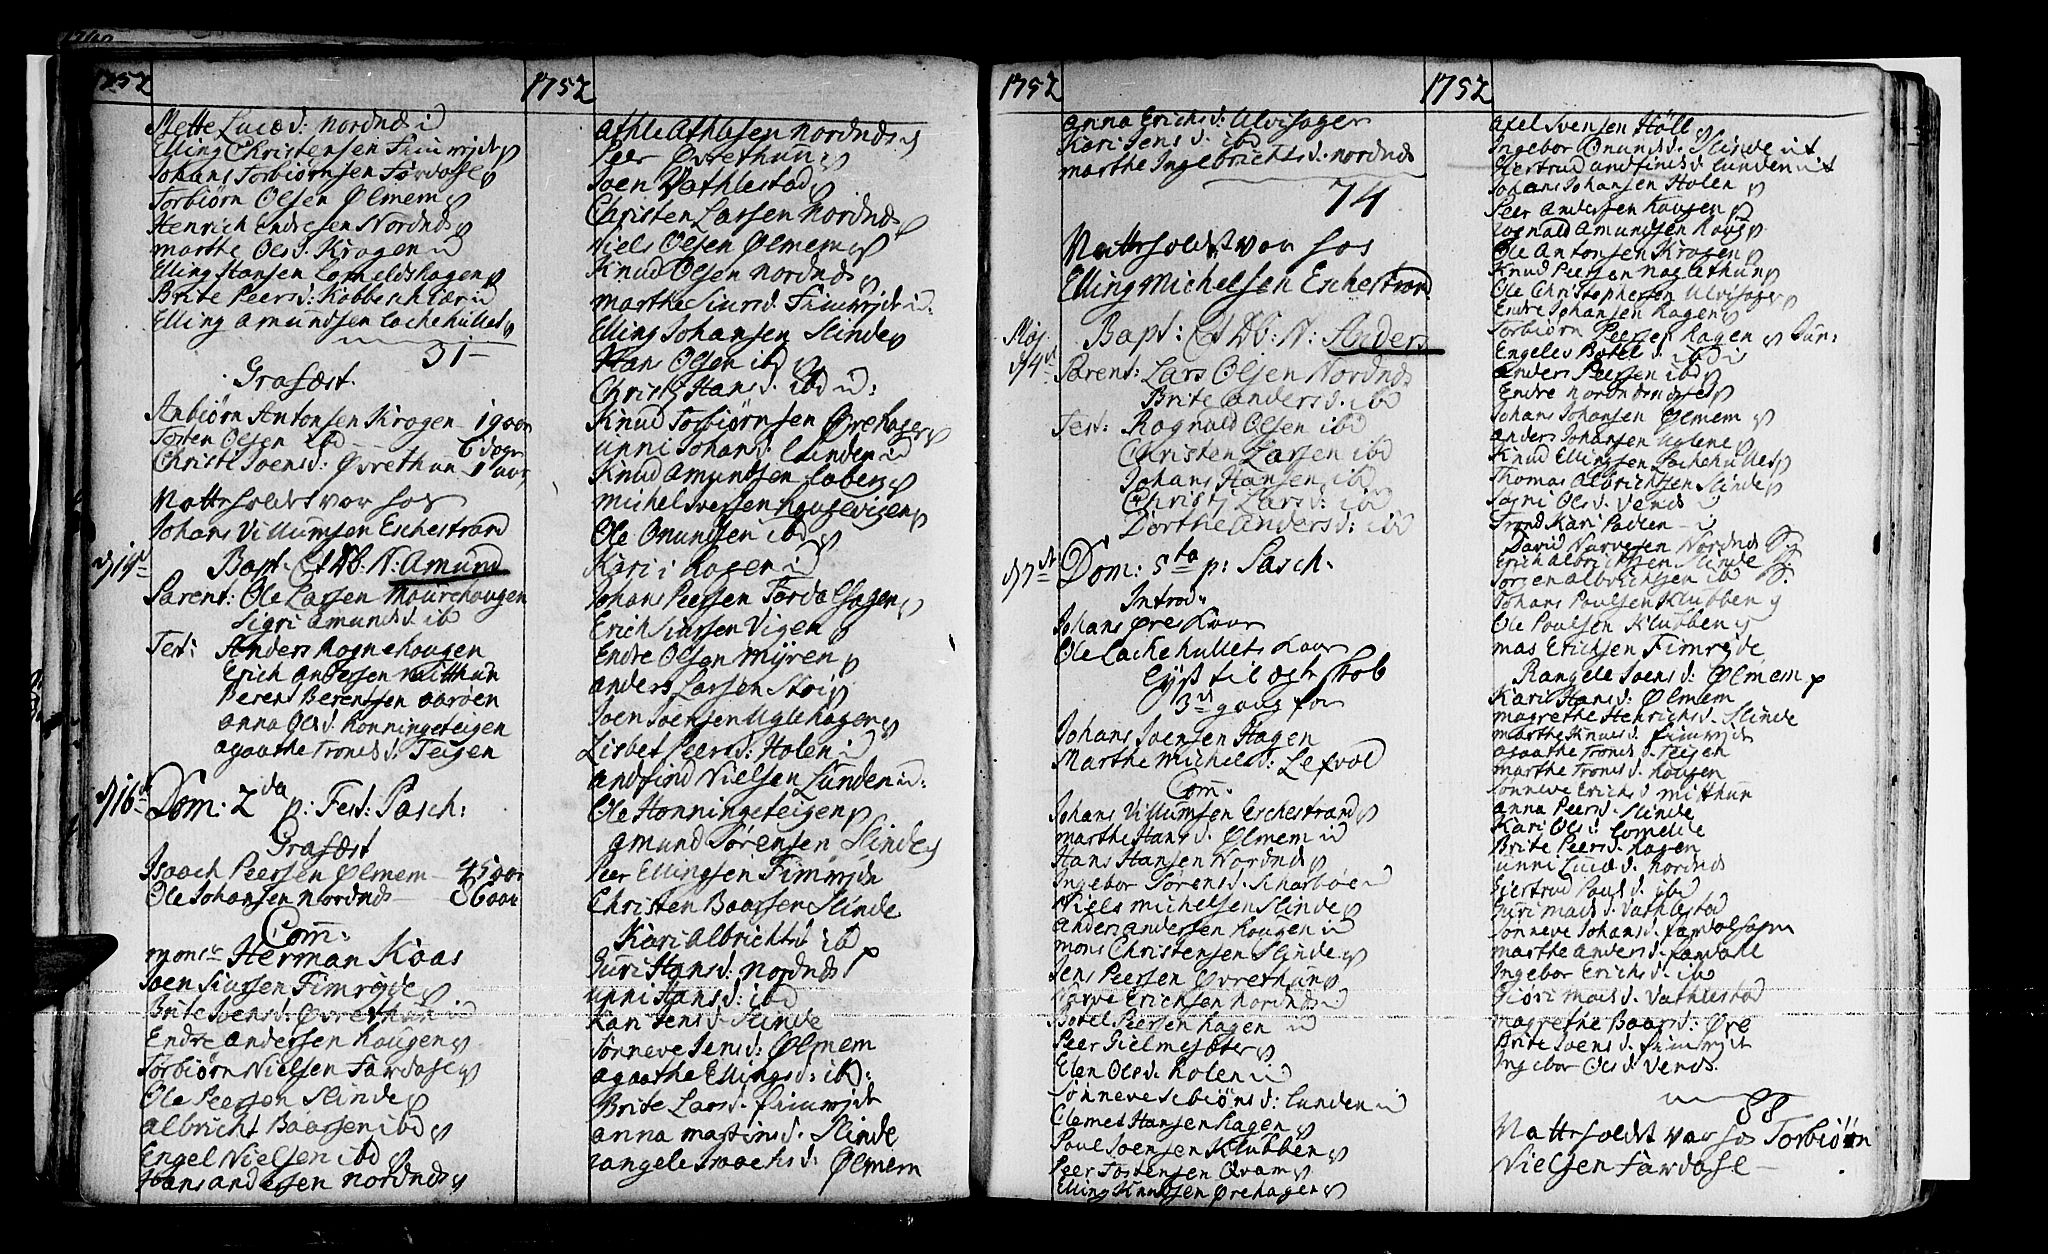 1752
Mette Lucæd: Nordnæs
Elling Christensen Fimrejte
Johans Torbiørnsen Førdahl
Torbiørn Olsen Ølmem
Henrich Endresen Nordnds
Marthe Olsd: Kragen
Elling Hansen Corneldshagen
Brite Peersd:
Elling Amundsen Lachehullet
31-
Grafæst.
Anbiørn Antonsen Kragen 19 aar
Torsten Olsen ibd - 6 dage
Christi Joensd: Øvrethun 1 aar
Nattholdt var hos
Johans Villumsen Eschestrand
d 14
Bapt: N: Amund
Parent: Ole Larsen Maurehougen
Sigri Amundsd. ib
Test: Anders Rognehougen
Erich Andersen Nitthun
Berent Berentsen Aarøen
Anna Olsd Honningeteigen
Agaathe Tronsd: Teigen
d 16
Dom: 2da p: Fest: Pasch:
Grafæst
Isaach Peersen Ølmem - 45 aar
Ole Johansen Nordnds - 86 aar
Com:
Mons: Herman Kaas
Joen Siursen Fimrejte
Brite Joensd: Øvrethun
Endre Andersen Hougen
Torbiørn Nielsen Fardahl
Ole Peersen Slinde
Albricht Baarsen ibd
Engel Nielsen ibd
Hans Andersen Nordnds
1752
Athle Athlesen Nordnds
Peer Øvrethun
Joen Vathlestad
Christen Larsen Nordnds
Niels Olsen Ølmem
Knud Olsen Nordnds
Marthe Siursd. Fimrejte
Elling Johansen Slinde
Hans Olsen ibd
Christi Hansd. ibd
Knud Torbiørnsen Ørehagen
Unni Johansd: Lunden
Knud Amundsen
Michel Iversen
Ole Onundsen ibd
Kari i Hagen
Johans Peersen Førdalshagen
Erich Siursen Vigen
Endre Olsen Myren
Anders Larsen Stoi
Joen Joensen Uglehagen
Lisbet Peersd: Holen
Andfind Nielsen Lunden
Ole Honningeteigen
Amund Sørensen Slinde
Peer Ellingsen Fimrejte
Christen Baarsen Slinde
Kari Albrichtsd ibd
Guri Hansd: Nordnds
Unni Hansd: ibd
Kari Jensd: Slinde
Sønneve Jensd: Ølmem
Agaathe Ellingsd: ib:
Brite Larsd. Fimrejte
Anna Martinsd. Slinde
Rangele Isaachsd: Ølmem
1752
Anna Erichsd: Ulvisager
Kari Jensd. ibd
Marthe Ingebrichtsd. Nordnds
74
Nattholdt var hos
Elling Michelsen Eschestrand
Maj. d 4
Bapt: N: Anders
Parent: Lars Olsen Nordnds
Brite Andersd. ibd
Test: Rognald Olsen ibd
Christen Larsen ibd
Johans Hansen ibd
Christi Larsd: ibd
Dorthe Andersd: ibd
d 7
Dom: 5ta p: Pasch.
Introd:
Johans Øres Kaar
Ole Lachehullets Kaar
Lyst til egteskab
3d gang for
Johans Joensen Hagen
Marthe Michelsd: Lefvol
Com:
Johans Villumsen Eschestrand
Marthe Hansd. Ølmem
Hans Hansen Nordnds
Ingebor Sørensd. Scharbøe
Niels Michelsen Slinde
Anders Andersen Hougen
Mons Christensen Slinde
Jens Peersen Øvrethun
Narve Erichsen Nordnds
Botel Peersen Hagen
Peer Gielmejster
Elen Olsd. Holen
Sønneve Sebiørnsd: Lunden
Clemet Hansen Hagen
Paul Joensen Klubben
Peer Torstensen Qvam
Elling Knudsen Ørehagen
1752
Axel Svensen Høll
Ingebor Onundsd. Slinde
Giertrud Andfindsd. Lunden
Johans Johansen Holen
Peer Andersen Hougen
Rognald Amundsen Houg
Ole Antonsen Kragen
Knud Peersen Naglethun
Ole Christophersen Ulvisager
Endre Johansen Hagen
Torbiørn Peersen Hagen Jun:
Engele Botolsd. ibd
Anders Peersen ibd
Endre Nordnds
Johans Johansen Ølmem
Anders Johansen Uglene
Knud Ellingsen Lachehullet
Thomas Albrichtsen Slinde
Sigri Olsd. Vends
Trond Kari Padlen
David Narvesen Nordnds
Erich Albrichtsen Slinde
Torsten Albrichtsen ibd
Johans Paulsen Klubben
Ole Poulsen Klubben
Mas Erichsen Fimrejte
Rangele Joensd: Ølmem
Kari Hansd: Ølmem
Magrethe Henrichsd. Slinde
Marthe Knudsd. Fimrejte
Agaathe Tronsd. Teigen
Marthe Tronsd. Hougen
Sønneve Erichsd Mithun
Anna Peersd. Slinde
Kari Olsd: Cornelie
Brite Peersd. Hagen
Unni Lucæd. Nordnds
Giertrud Paulsd. ibd
Guri Madsd. Vathlestad
Sønneve Johansd. Fardalsagen
Marthe Andersd. Fardahl
Ingebor Erichsd. ib
Giøri Madsd. Vathlestad
Magrethe Baarsd: Øre
Brite Joensd. Fimrejte
Ingebor Olsd Vends.
88
Nattholdt var hos Torbiørn
Nielsen Fardahl -